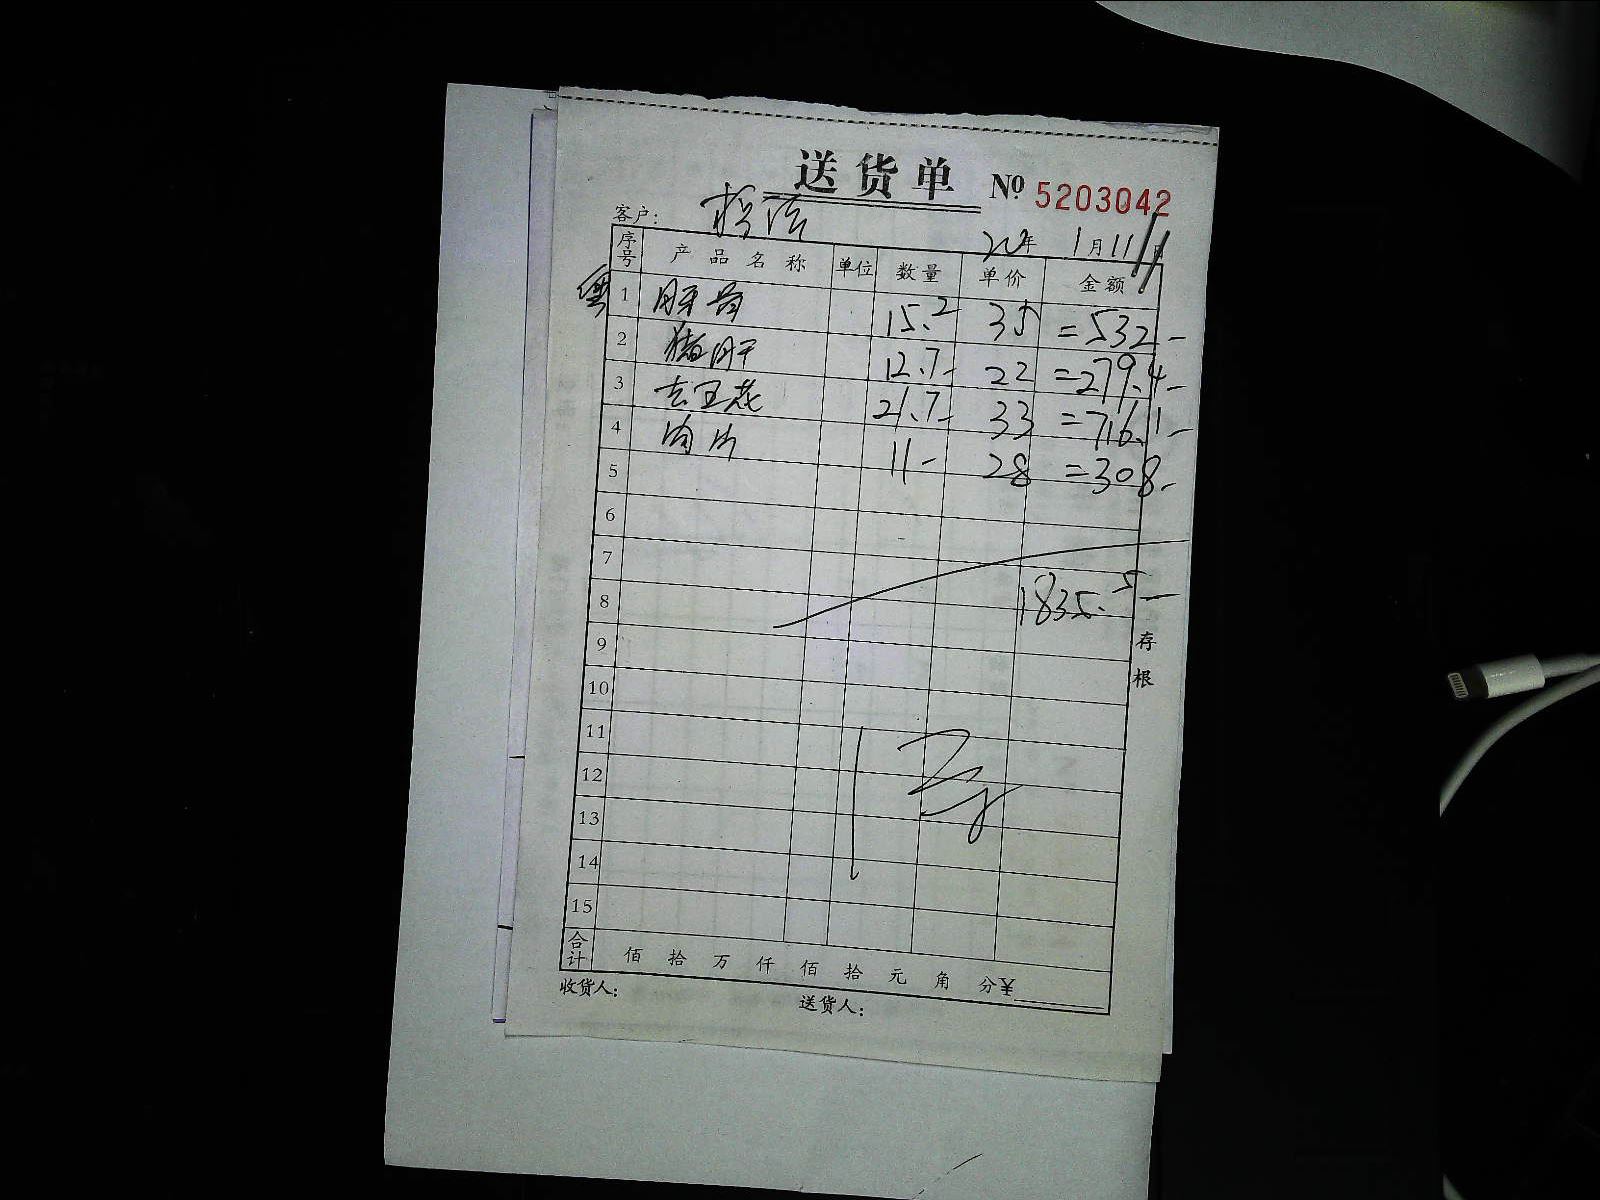 送货单 № 5203042
客户：
20年 1月11日
序号 产品名称 单位 数量 单价 金额
1 15.2 35 =532-
2 猪肝 12.7- 22 =279.4-
3 21.7- 33 =716.1-
4 肉片 11- 28 =308.-
5
6
7
8 1835.5-
9
10
11
12
13
14
15
合计 佰 拾 万 仟 佰 拾 元 角 分 ¥
收货人： 送货人：
存根